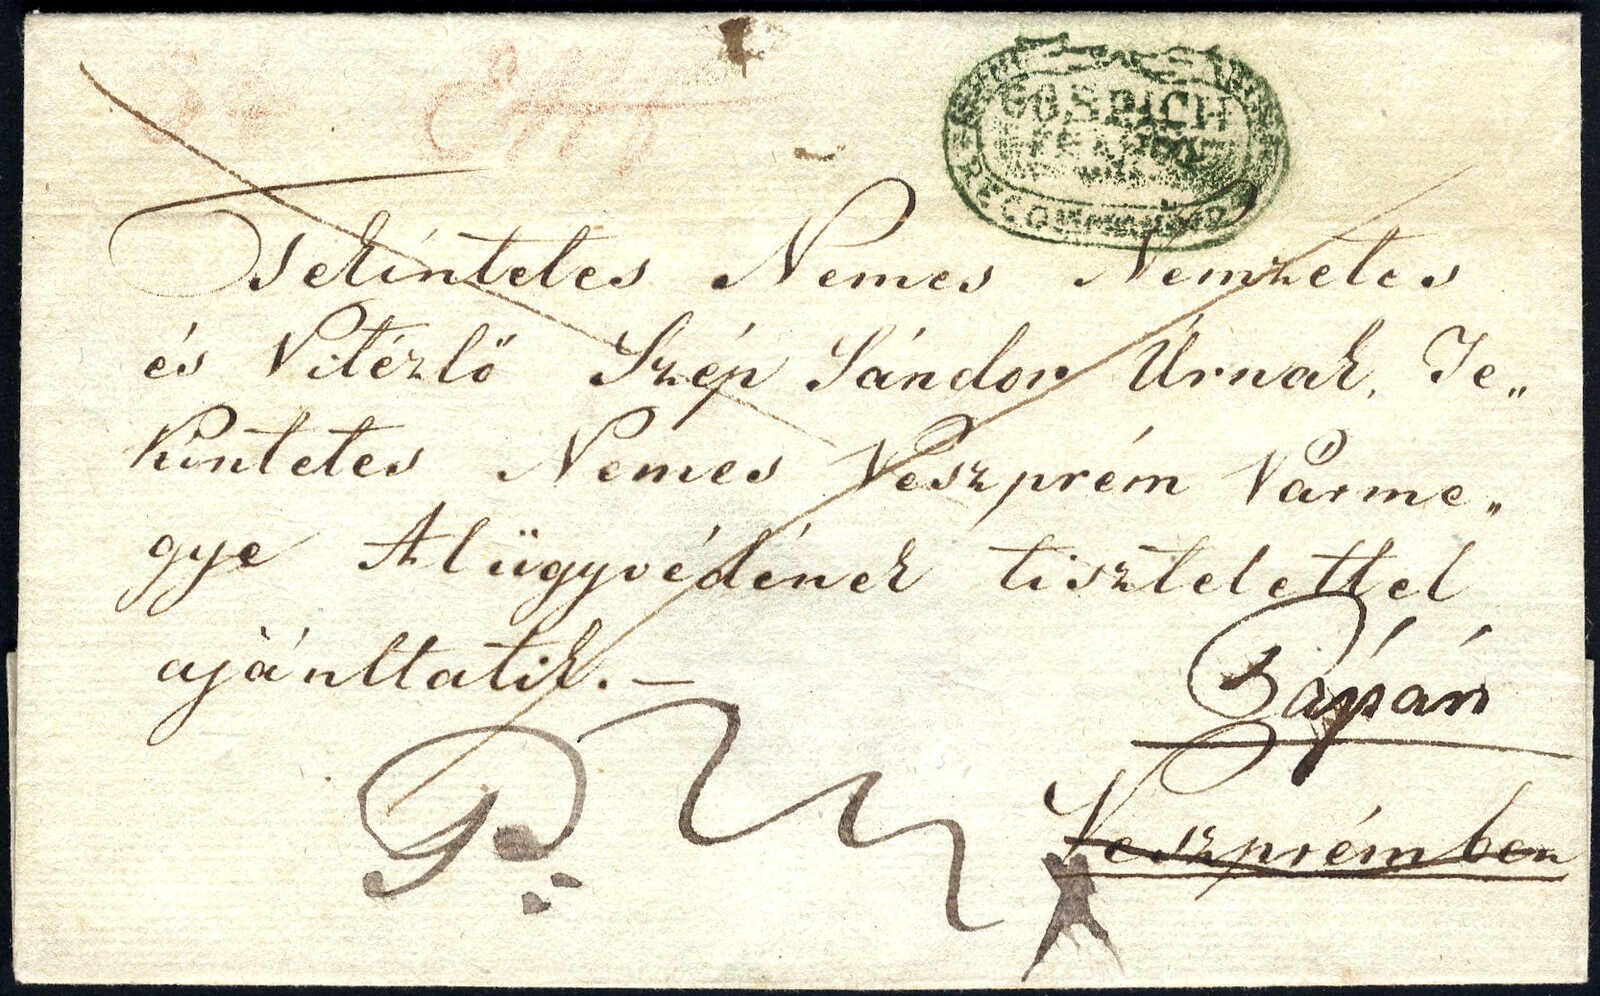 GOSPICH
Tekintetes Nemes Nemzetes
és Vitézlő Szép Sándor Úrnak, Te„
kintetes Nemes Veszprém Várme„
gye Alügyvédének tisztelettel
ajánltatik. —
Pápán
Veszprémben